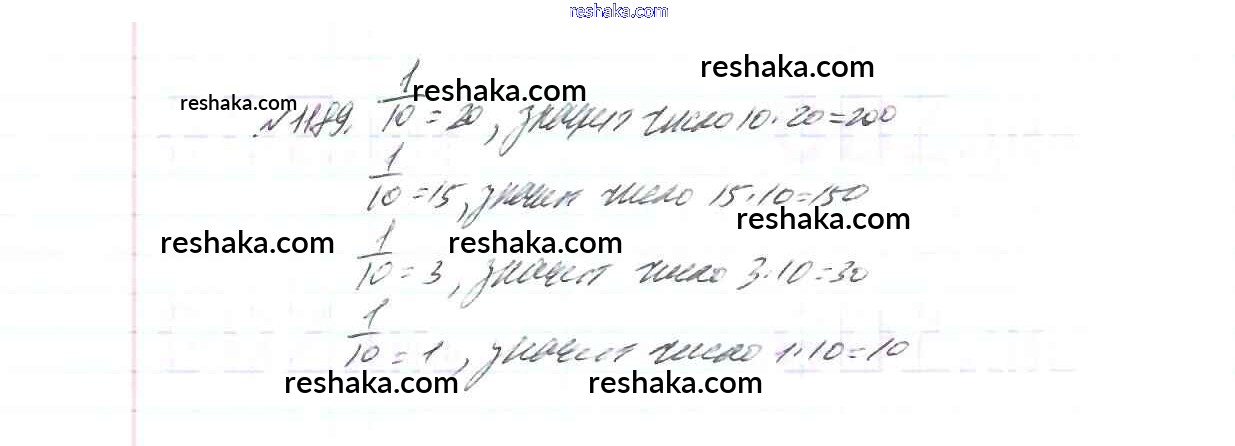 reshaka.com
reshaka.com
reshaka.com reshaka.com
№1189. 1/10 = 20, значит число 10·20=200
1/10 = 15, значит число 15·10=150
reshaka.com
reshaka.com reshaka.com
1/10 = 3, значит число 3·10=30
1/10 = 1, значит число 1·10=10
reshaka.com reshaka.com